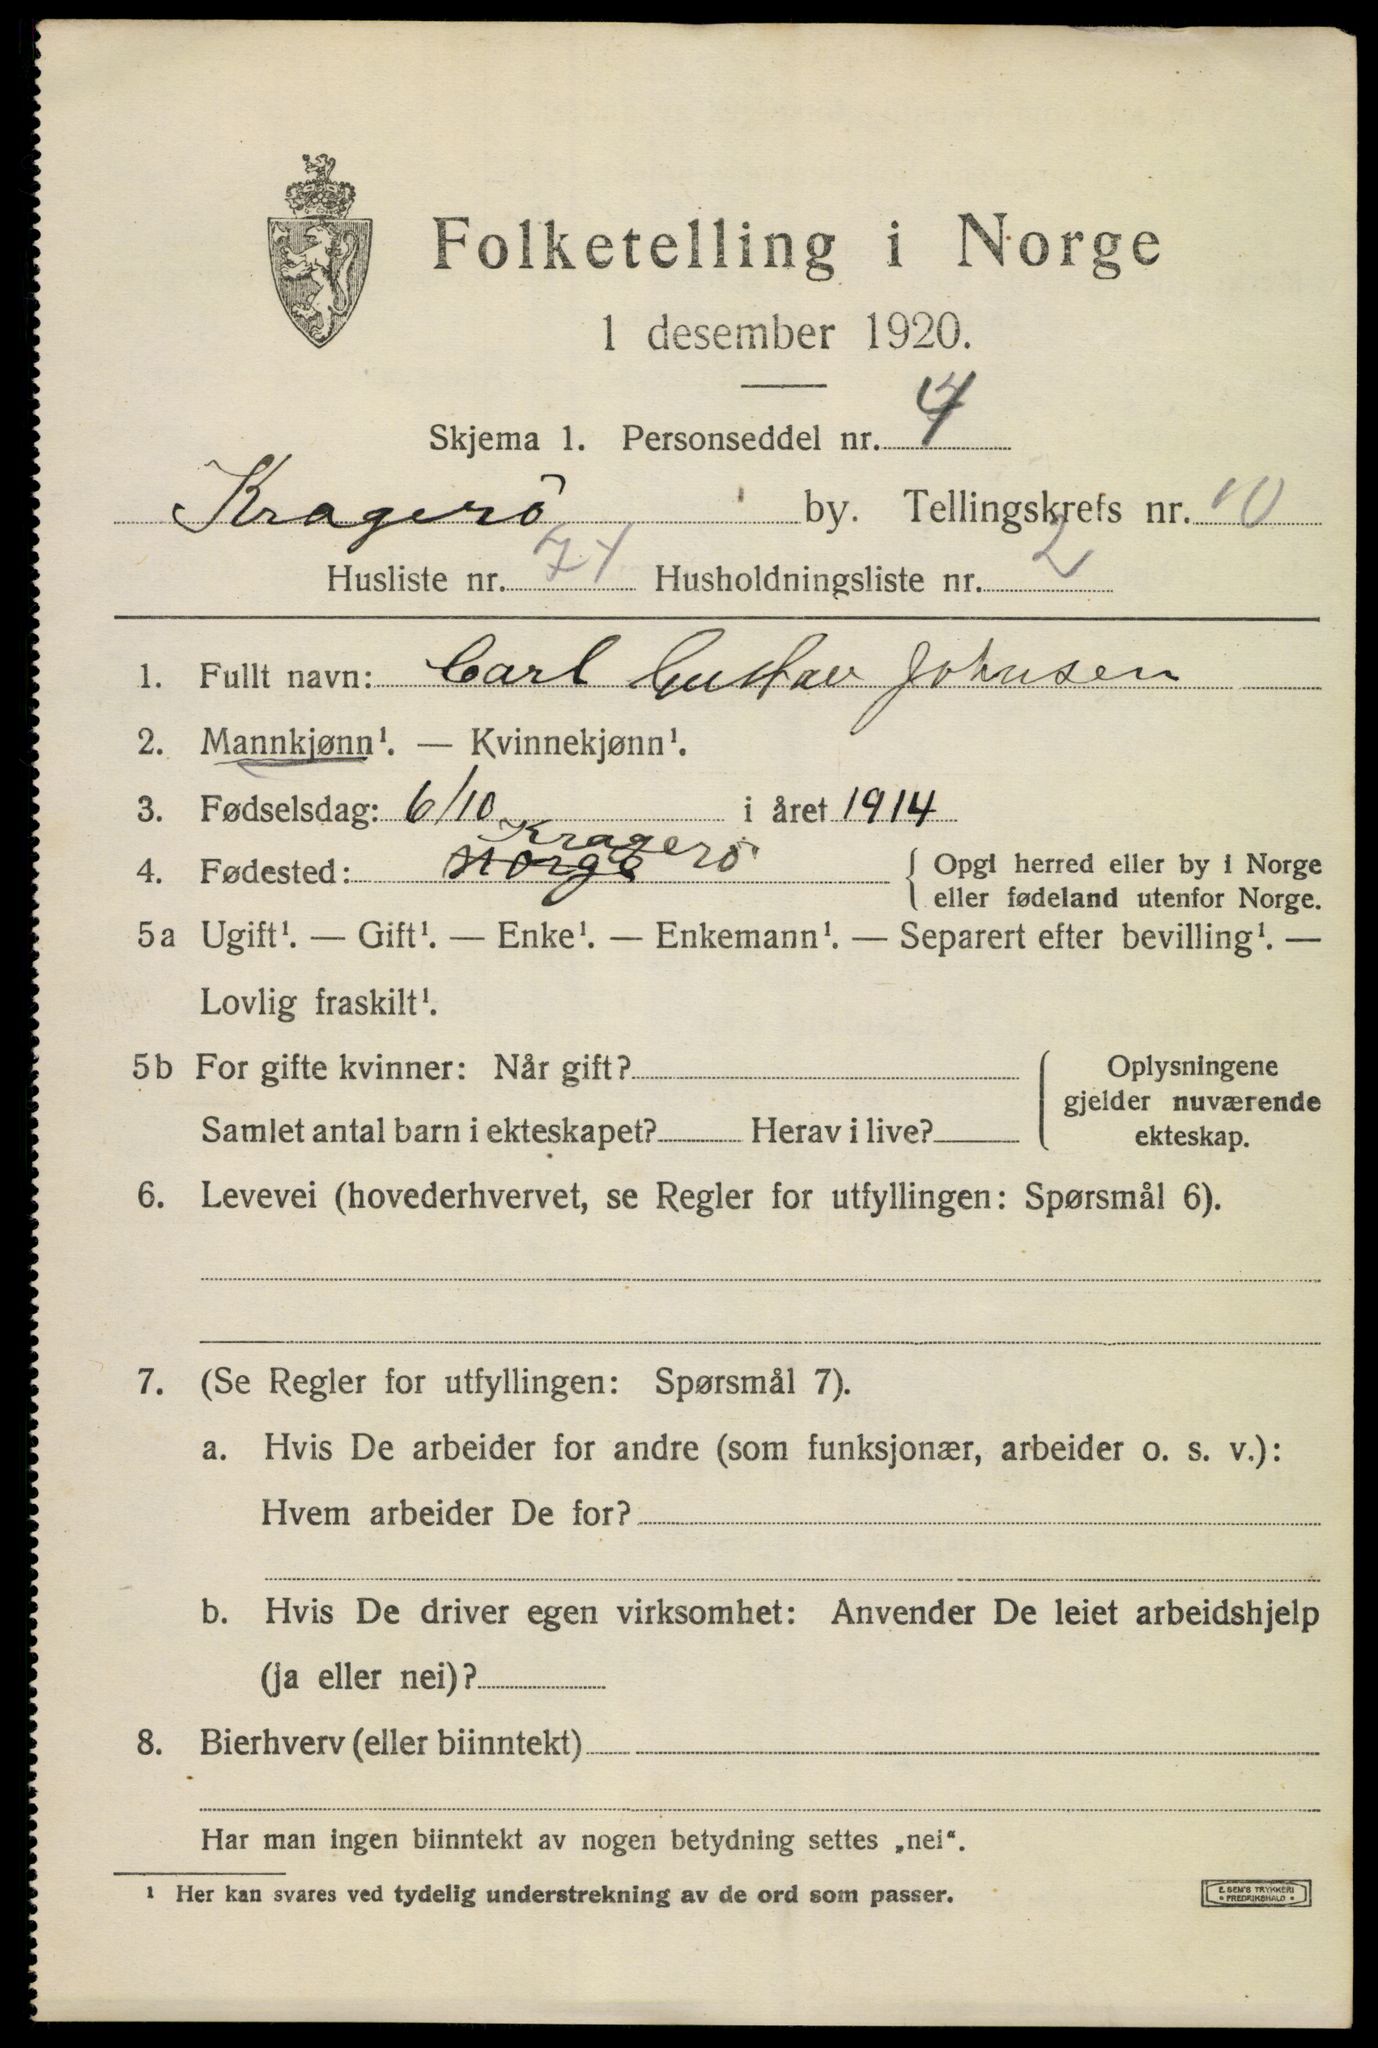 Folketelling i Norge
1 desember 1920.
Skjema 1. Personseddel nr. 4
Kragerö by. Tellingskrets nr. 10
Husliste nr. 71 Husholdningsliste nr. 2
1. Fullt navn: Carl Gustav Johnsen
2. Mannkjønn¹. — Kvinnekjønn¹.
3. Fødselsdag: 6/10 i året 1914
Kragerö
4. Fødested: Norge { Opgi herred eller by i Norge
eller fødeland utenfor Norge.
5a Ugift¹. — Gift¹. — Enke¹. — Enkemann¹. — Separert efter bevilling¹. —
Lovlig fraskilt¹.
5b For gifte kvinner: Når gift? { Oplysningene
gjelder nuværende
Samlet antal barn i ekteskapet? Herav i live? ekteskap.
6. Levevei (hovederhvervet, se Regler for utfyllingen: Spørsmål 6).
7. (Se Regler for utfyllingen: Spørsmål 7).
a. Hvis De arbeider for andre (som funksjonær, arbeider o. s. v.):
Hvem arbeider De for?
b. Hvis De driver egen virksomhet: Anvender De leiet arbeidshjelp
(ja eller nei)?
8. Bierhverv (eller biinntekt)
Har man ingen biinntekt av nogen betydning settes „nei“.
¹ Her kan svares ved tydelig understrekning av de ord som passer.
E. SEM'S TRYKKERI
FREDRIKSHALD